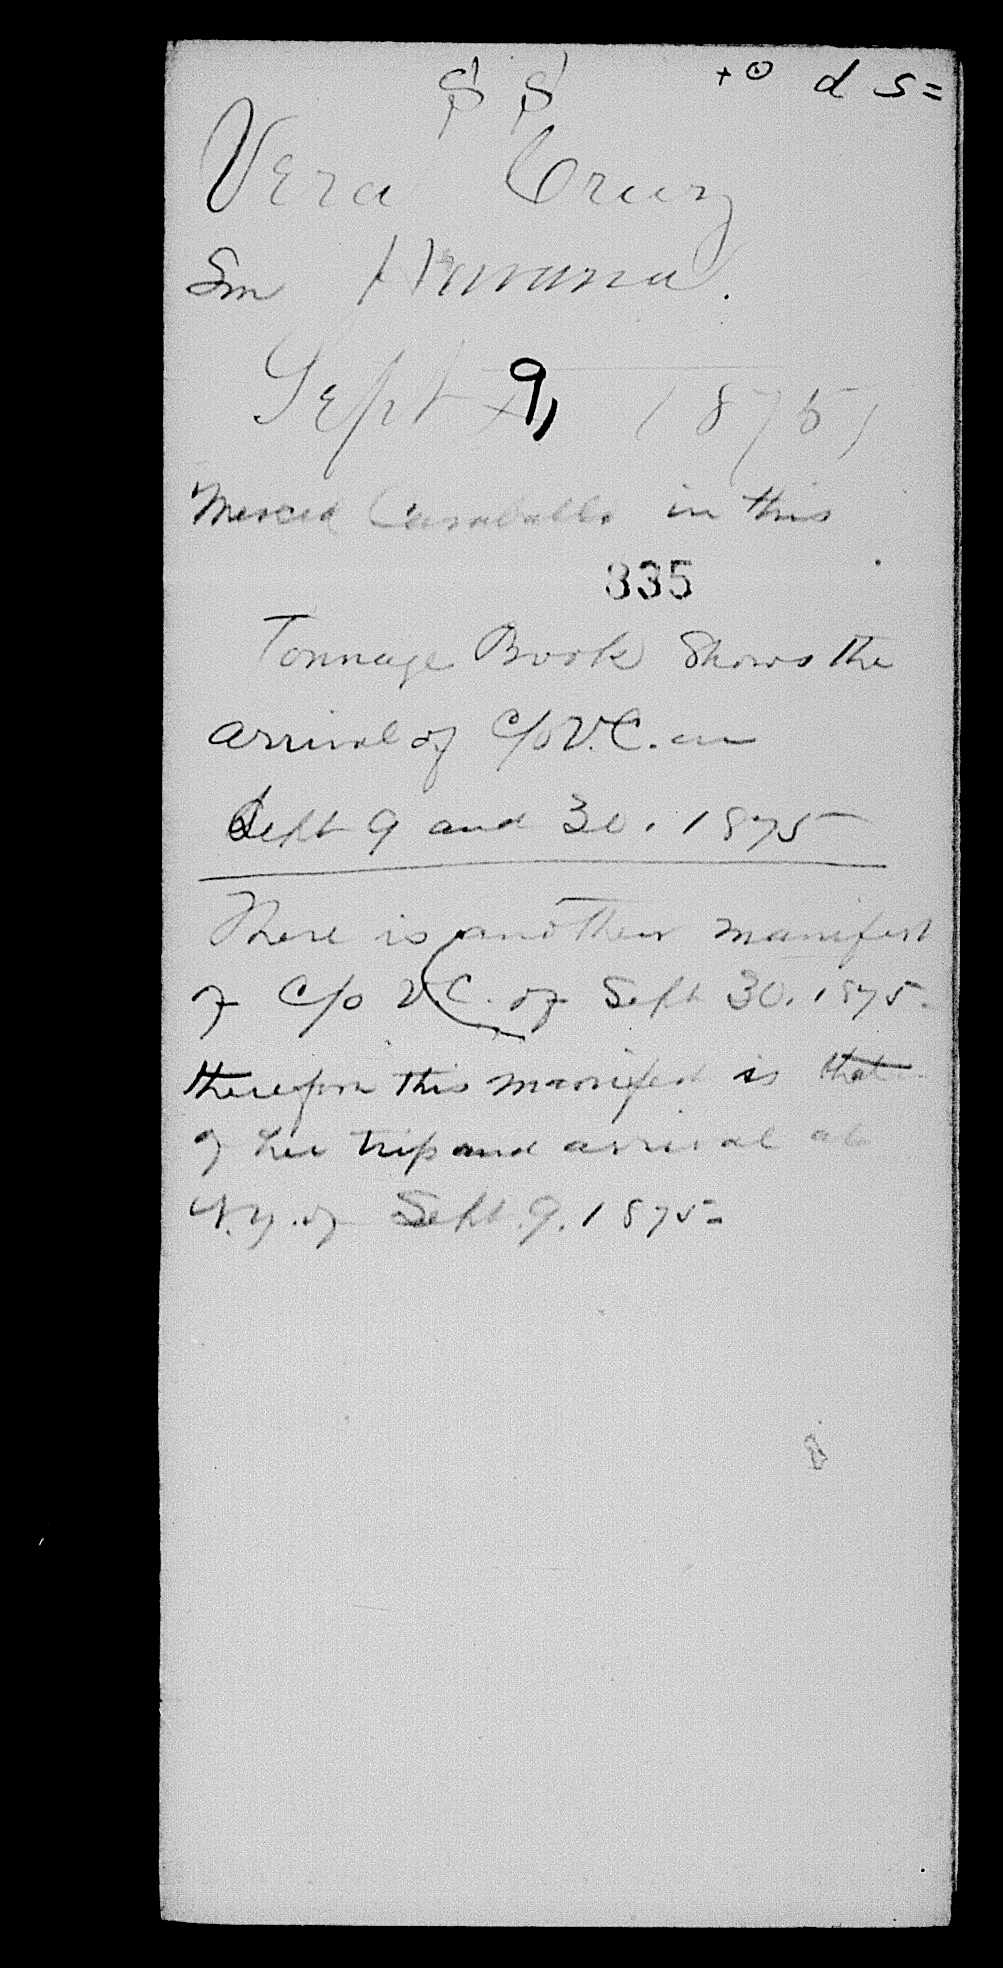 S S
d S =
Vera Cruz
Fm Havana.
Sept 9, 1875
Merced Caraballo in this
335
Tonnage Book Shows the
arrival of C/o V.C. on
Sept 9 and 30. 1875
There is another manifest
of C/o V.C. of Sept 30. 1875.
therefore this manifest is that
of her trip and arrival at
N.Y. of Sept. 9. 1875 =